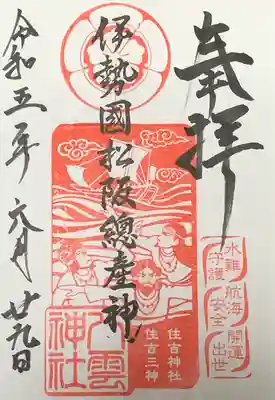 奉拝
伊勢國松阪總産神
令和五年六月廿九日
住吉神社
住吉三神
八雲神社
水難守護
航海安全
開運出世